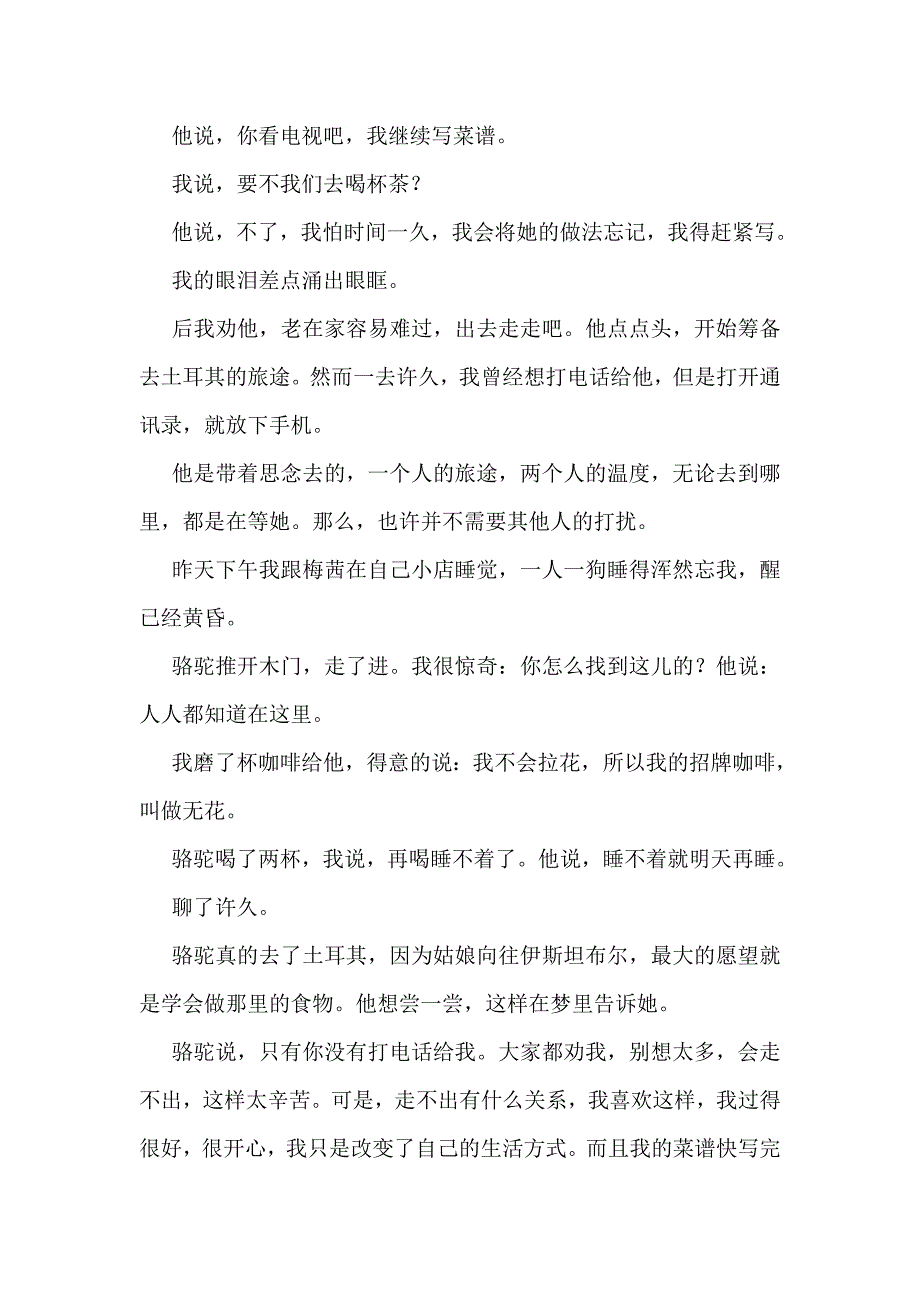 他说，你看电视吧，我继续写菜谱。
我说，要不我们去喝杯茶？
他说，不了，我怕时间一久，我会将她的做法忘记，我得赶紧写。
我的眼泪差点涌出眼眶。
后我劝他，老在家容易难过，出去走走吧。他点点头，开始筹备
去土耳其的旅途。然而一去许久，我曾经想打电话给他，但是打开通
讯录，就放下手机。
他是带着思念去的，一个人的旅途，两个人的温度，无论去到哪
里，都是在等她。那么，也许并不需要其他人的打扰。
昨天下午我跟梅茜在自己小店睡觉，一人一狗睡得浑然忘我，醒
已经黄昏。
骆驼推开木门，走了进。我很惊奇：你怎么找到这儿的？他说：
人人都知道在这里。
我磨了杯咖啡给他，得意的说：我不会拉花，所以我的招牌咖啡，
叫做无花。
骆驼喝了两杯，我说，再喝睡不着了。他说，睡不着就明天再睡。
聊了许久。
骆驼真的去了土耳其，因为姑娘向往伊斯坦布尔，最大的愿望就
是学会做那里的食物。他想尝一尝，这样在梦里告诉她。
骆驼说，只有你没有打电话给我。大家都劝我，别想太多，会走
不出，这样太辛苦。可是，走不出有什么关系，我喜欢这样，我过得
很好，很开心，我只是改变了自己的生活方式。而且我的菜谱快写完